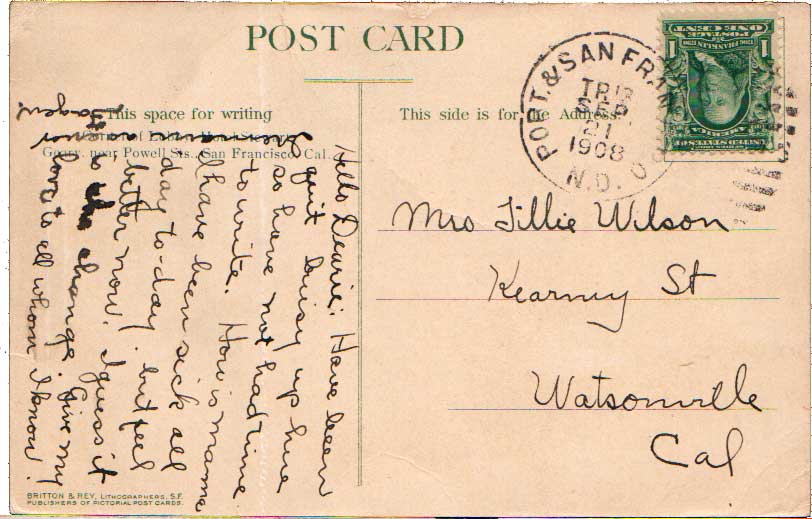 POST CARD
This space for writing
This side is for the Address.
Geary, near Powell Sts., San Francisco, Cal.
PORT. & SAN FRAN
TR 13
SEP.
21
1908
N.D.
ONE CENT
POSTAGE
1 1
UNITED STATES OF
AMERICA
Mrs Tillie Wilson
Kearney St
Watsonville
Cal
Hello Dearie: Have been
quit buisy up hue
so have not had time
to write. How is mama
I have been sick all
day to-day. but feel
better now. I guess it
is the change. Give my
love to all whom I know.
BRITTON & REY, LITHOGRAPHERS, S.F.
PUBLISHERS OF PICTORIAL POST CARDS.